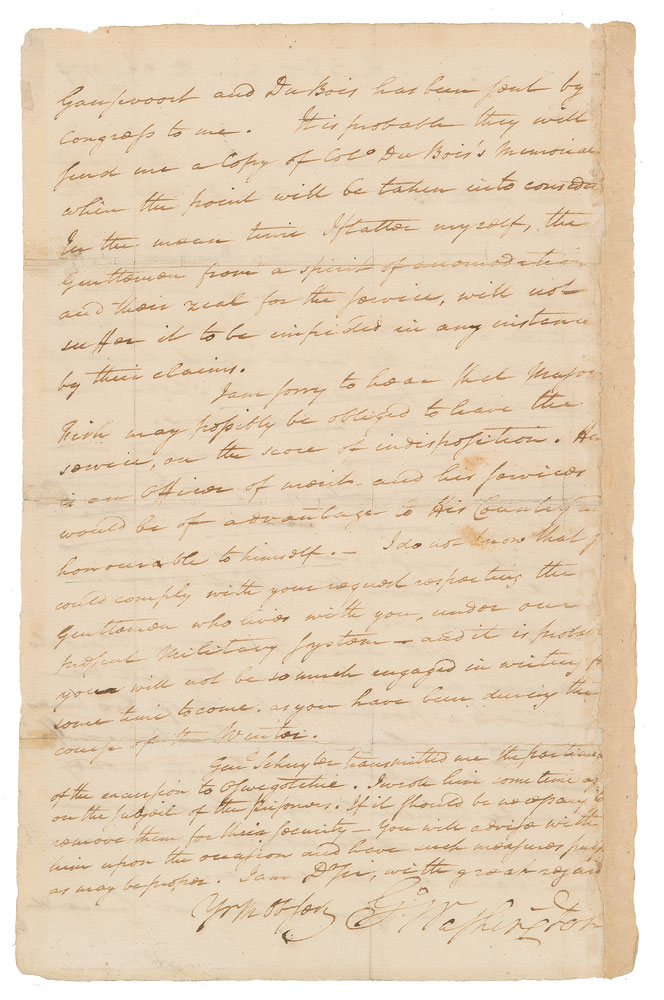 Gansvoort and Du Bois has been sent by
Congress to me. It is probable they will
send me a Copy of Colo. Du Bois's Memorial
when the point will be taken into consider
In the mean time I flatter myself, the
Gentlemen from a spirit of accomodation
and their zeal for the service, will not
suffer it to be impeded in any instance
by their claims.
I am sorry to hear that Major
Fish may possibly be obliged to leave the
service, on the score of indisposition. He
is an Officer of merit and his services
would be of advantage to His Country &
honourable to himself. — I do not know that I
could comply with your request respecting the
Gentleman who lives with you, under our
present Military System — and it is probab
you will not be so much engaged in writing for
some time to come, as you have been during the
course of the Winter.
Genl. Schuyler transmitted me the particulars
of the excursion to Oswegotchie. I wrote him some time ago
on the subject of the Prisoners. If it should be necessary to
remove them for their security — You will advise with
him upon the occasion and have such measures
as may be proper. I am Dr Sir, with great regard
Yr Most Obed
Go Washington